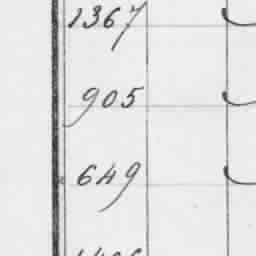 1367
905
649